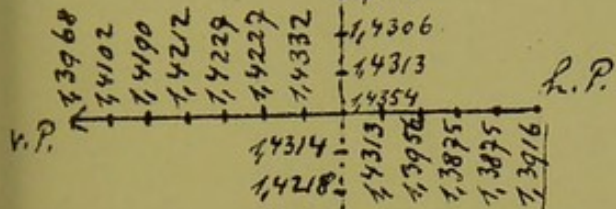 1,3968
1,4102
1,4190
1,4212
1,4229
1,4227
1,4332
1,4306
1,4313
1,4354
h. P.
v. P.
1,4314
1,4218
1,4313
1,3956
1,3875
1,3875
1,3916